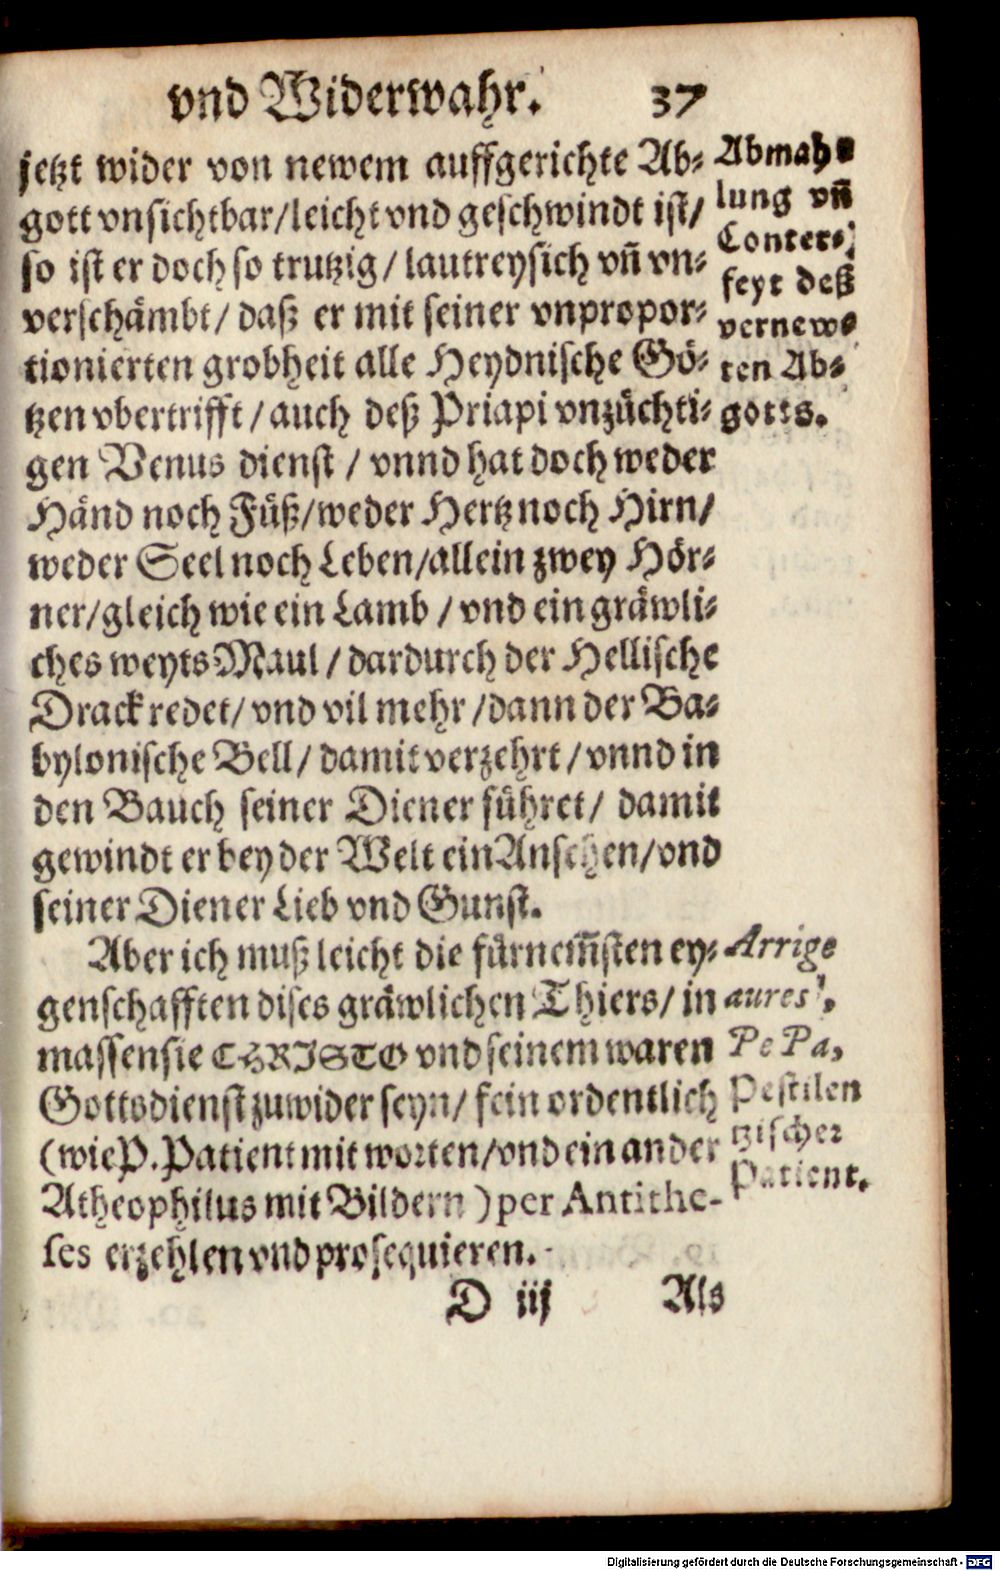 vnd Widerwahr. 37
jetzt wider von newem auffgerichte Ab-
gott vnsichtbar/leicht vnd geschwindt ist/
so ist er doch so trutzig/lautreysich vn̄ vn-
verschämbt/ daß er mit seiner vnpropor-
tionierten grobheit alle Heydnische Gö-
tzen vbertrifft/auch deß Priapi vnzüchti-
gen Venus dienst / vnnd hat doch weder
Händ noch Füß/weder Hertz noch Hirn/
weder Seel noch Leben/allein zwey Hör-
ner/gleich wie ein Lamb / vnd ein gräwli-
ches weyts Maul / dardurch der Hellische
Drack redet/ vnd vil mehr /dann der Ba-
bylonische Bell/ damit verzehrt/vnnd in
den Bauch seiner Diener führet/ damit
gewindt er bey der Welt ein Ansehen/vnd
seiner Diener Lieb vnd Gunst.
Aber ich muß leicht die fürnem̄sten ey-
genschafften dises gräwlichen Thiers/ in
massen sie CHRISTO vnd seinem waren
Gottsdienst zuwider seyn/ fein ordentlich
(wie P. Patient mit worten/vnd ein ander
Atheophilus mit Bildern ) per Antithe-
ses erzehlen vnd prosequieren.
D iij Als
Abmah-
lung vn̄
Conter-
feyt deß
vernew-
ten Ab-
gotts.
Arrige
aures,
Pe Pa,
Pestilen
tzischer
Patient.
Digitalisierung gefördert durch die Deutsche Forschungsgemeinschaft - DFG